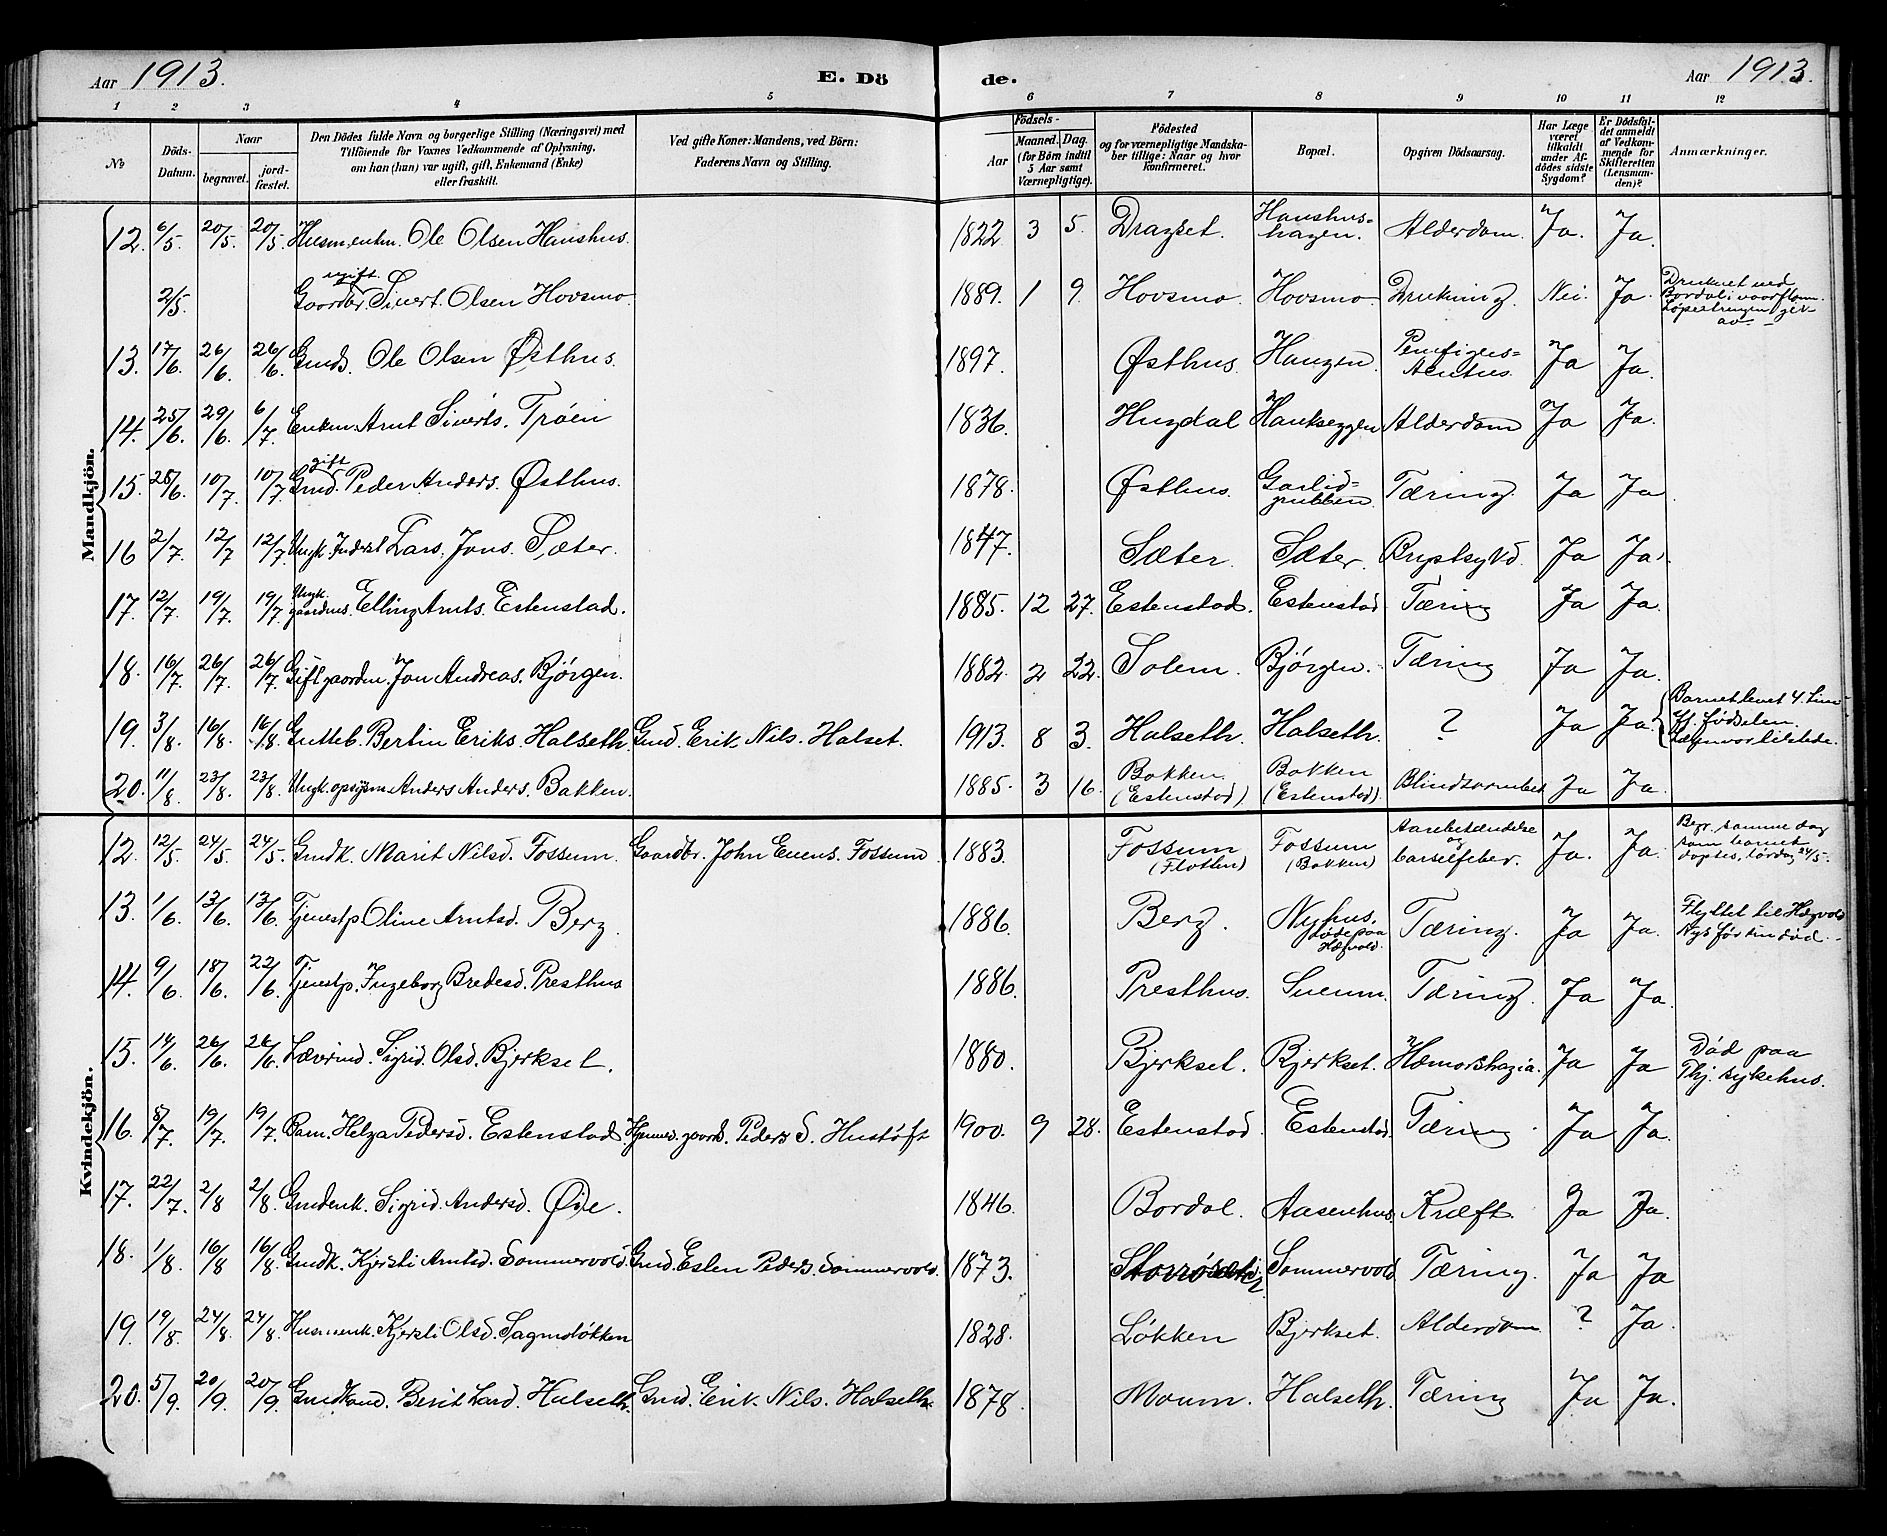 Aar 1913. E. Dö de. Aar 1913.
1 2 3 4 5 6 7 8 9 10 11 12
No
Döds-Datum.
Naar begravet. jord-fæstet.
Den Dödes fulde Navn og borgerlige Stilling (Næringsvei) med
Tilföiende for Voxnes Vedkommende af Oplysning,
om han (hun) var ugift, gift, Enkemand (Enke)
eller fraskilt.
Ved gifte Koner: Mandens, ved Börn:
Faderens Navn og Stilling.
Födsels-
Aar Maaned. Dag.
(for Börn indtil
5 Aar samt
Værnepligtige).
Födested
og for værnepligtige Mandska-
ber tillige: Naar og hvor
konfirmeret.
Bopæl.
Opgiven Dödsaarsag.
Har Læge
været
tilkaldt
under Af-
dödes sidste
Sygdom?
Er Dödsfal-
det anmeldt
af Vedkom-
mende for
Skifteretten
(Lensman-
den)?
Anmærkninger.
Mandkjön.
12. 6/5. 20/5. 20/5. Husm.enkm. Ole Olsen Haushus. 1822 3 5. Dragset. Haushus=hagen. Alderdom. Ja. Ja.
2/5. ugift Gaardbr. Sivert Olsen Hovsmo 1889. 1 9. Hovsmo Hovsmo Drukning. Nei. Ja. Druknet ved
13. 17/6. 26/6 26/6. Gmds. Ole Olsen Østhus. 1897. Østhus. Haugen. Ja Ja.
14. 25/6. 29/6. 6/7. Enkem. Arnt Siverts. Trøen 1836. Hugdal Haukseggen Alderdom Ja Ja.
15. 28/6. 10/7. 10/7. gift Gmd. Peder Anders. Østhus. 1878. Østhus. Garlid=grubben Tæring. Ja Ja.
16 2/7. 12/7 12/7. Ungk. Inderst Lars Jons. Sæter. 1847. Sæter. Sæter. Ja Ja.
17. 12/7. 19/7. 19/7. Ungk. gaardms. Elling Arnts. Estenstad. 1885. 12 27. Estenstad. Estenstad Tæring Ja Ja.
18. 16/7. 26/7. 26/7. Gift gaardm. Jon Andreas. Bjørgen. 1882. 2 22. Solem. Bjørgen. Tæring Ja Ja.
19. 3/8. 16/8. 16/8. Gutteb. Bertin Eriks. Halseth. Gmd. Erik Nils. Halset. 1913. 8 3. Halseth. Halseth. ? Ja Ja. Barnet levet 4 tim
ef. fødselen.
20. 11/8. 23/8. 23/8. Ungk. opsynsm. Anders Anders. Bakken. 1885. 3 16. Bakken (Estenstad). Bakken (Estenstad). Blindtarmbet Ja Ja.
Kvindekjön.
12. 12/5. 24/5. 24/5. Gmdk. Marit Nilsd. Fossum. Gaardbr. John Evens. Fossum 1883. Fossum (Flotten) Fossum (Bakken) Aarebetændelse og barselfeber. Ja. Ja. Begr. samme dag
som barnet
døptes, lørdag 24/5.
13. 1/6. 13/6. 13/6. Tjenestp Oline Arntsd. Berg. 1886. Berg. Nyhus. døde paa Hægvold. Tæring. Ja Ja. Flyttet til Hægvold
Nys før sin død.
14. 9/6. 18/6. 22/6. Tjenestp. Ingeborg Bredesd. Presthus 1886. Presthus. Suum. Tæring. Ja Ja.
15. 14/6. 26/6. 26/6. Læverind. Sigrid Olsd. Bjerkset. 1880. Bjerkset. Bjerkset. Hæmorshagia. Ja Ja Død paa
Thj. sykehus.
16. 8/7. 19/7. 19/7. Barn. Helga Pedersd. Estenstad. Peder S. Hustøft 1900. 9 28. Estenstad. Estenstad. Tæring. Ja Ja.
17. 22/7. 2/8 2/8. Gmdenk. Sigrid Andersd. Øie. 1846. Bordal. Aasenhus. Kræft. Ja Ja.
18. 1/8. 16/8 16/8. Gmdk. Kjersti Arntsd. Sommervold. Gmd. Esten Peders. Sommervold. 1873. Sommervold Tæring. Ja Ja
19. 19/8. 24/8. 24/8. Husmenk. Kjersti Olsd. Sagmoløkken 1828. Løkken Bjerkset. Alderdom ? Ja.
20. 5/9. 20/9. 20/9. Gmdkone. Berit Larsd. Halseth. Gmd. Erik Nils. Halseth. 1878. Moum. Halseth. Tæring Ja Ja.